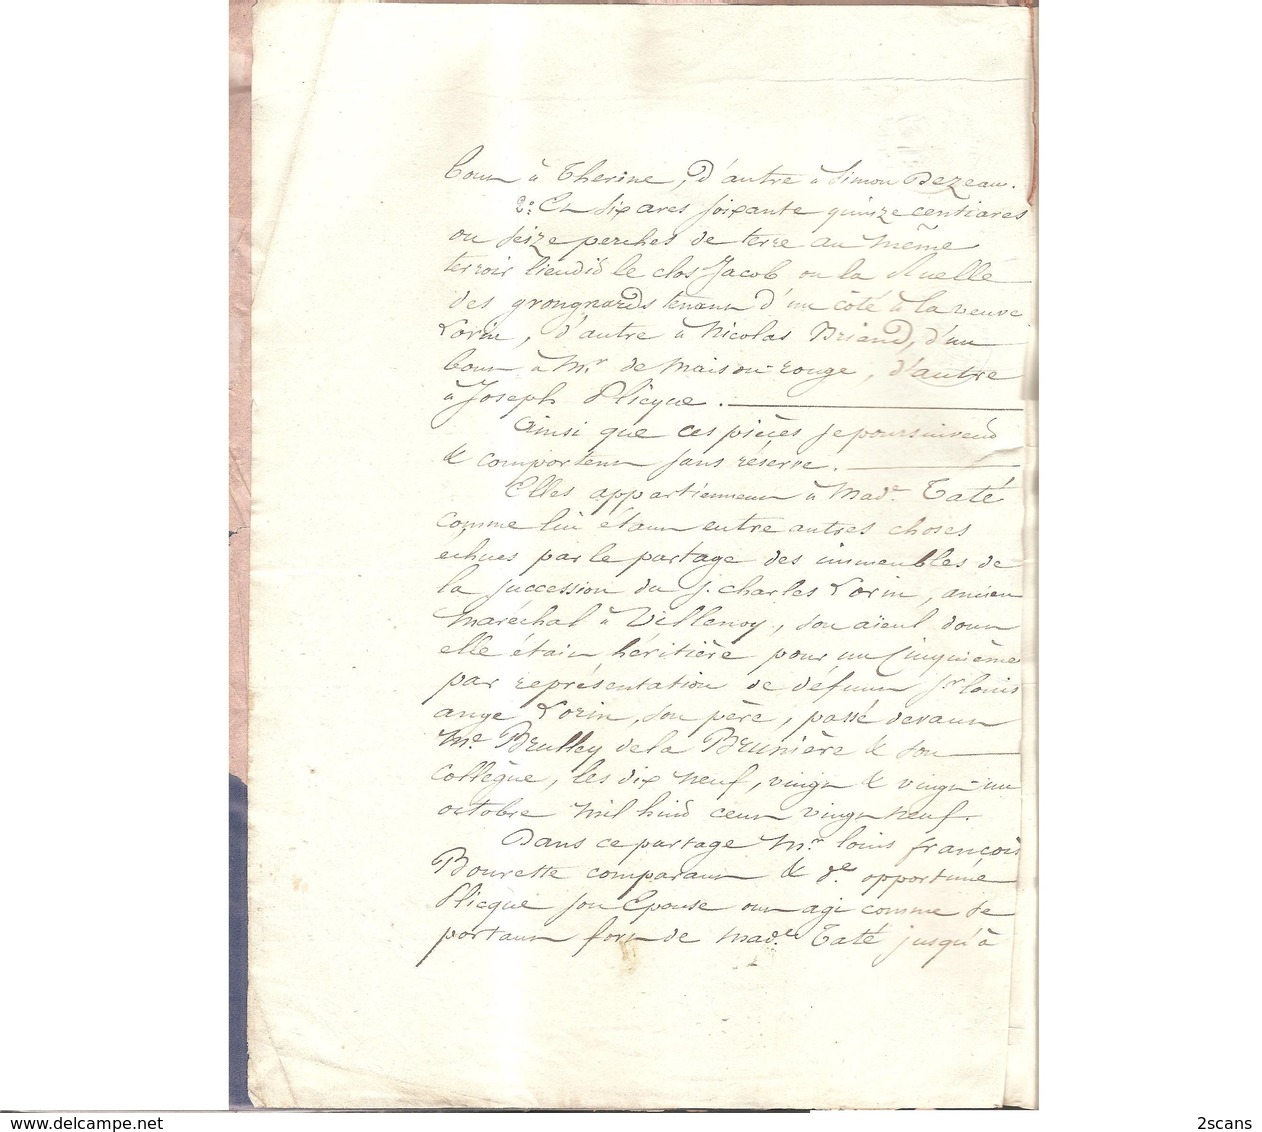 bout à Therine, d'autre à Simon Dezeau.
2° Et Six ares soixante quinze centiares
ou seize perches de terre au même
terroir lieudit le clos Jacob ou la Ruelle
des grongnards tenant d'un côté à la veuve
Lorin, d'autre à Nicolas Briand, d'un
bout à Mr de Maison-rouge, d'autre
à Joseph Plicque.
Ainsi que ces pièces se poursuivent
& comportent sans réserve.
Elles appartiennent à Made Taté
comme lui étant entre autres choses
échues par le partage des immeubles de
la succession du s. charles Lorin, ancien
maréchal à Villenoy, son aïeul dont
elle était héritière pour un Cinquième
par représentation de défunt Sr louis
ange Lorin, son père, passé devant
Me Brulley de la Brunière & son
collègue, les dix neuf, vingt & vingt-un
octobre mil huit cent vingt neuf.
Dans ce partage Mr louis françois
Bourette comparant & de opportune
Plicque son Epouse ont agi comme se
portant fort de Made Taté jusqu'à
delcampe.net
2scans